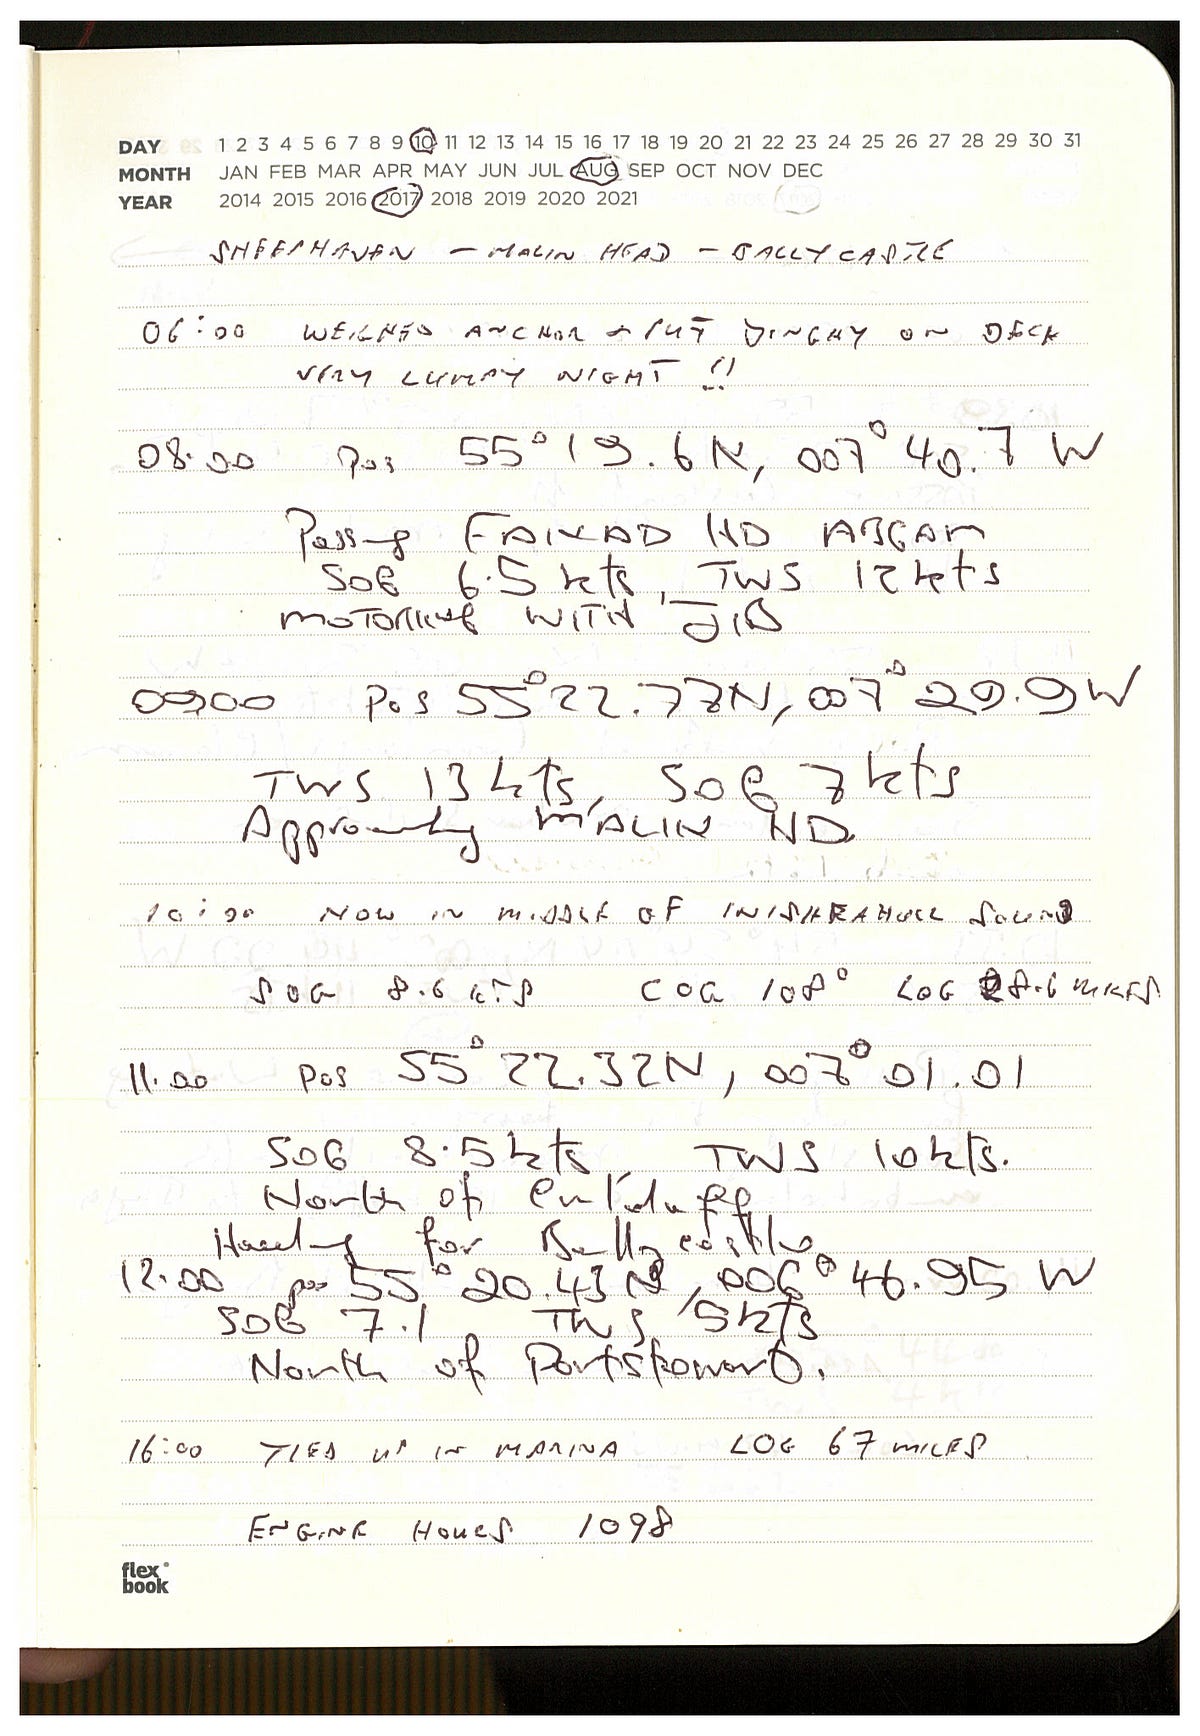 DAY 1 2 3 4 5 6 7 8 9 10 11 12 13 14 15 16 17 18 19 20 21 22 23 24 25 26 27 28 29 30 31
MONTH JAN FEB MAR APR MAY JUN JUL AUG SEP OCT NOV DEC
YEAR 2014 2015 2016 2017 2018 2019 2020 2021
SHEEPHAVEN - MALIN HEAD - BALLYCASTLE
06:00 WEIGHED ANCHOR + PUT DINGHY ON DECK
VERY LUMPY NIGHT !!
08:00 Pos 55° 19.6 N, 007° 40.7 W
Passing FANAD HD
SOG 6.5 kts, TWS 12 kts
MOTORING WITH JIB
09:00 Pos 55° 22.77N, 007° 29.9 W
TWS 13 kts, SOG 7 kts
Approaching MALIN HD.
10:00 NOW IN MIDDLE OF INISHTRAHULL SOUND
SOG 8.6 KTS COG 108° LOG 28.6 MILES
11.00 Pos 55° 22.32N, 007° 01.01
SOG 8.5 kts, TWS 10 kts.
North of
Heading for Ballycastle
12.00 pos 55° 20.43 N, 006° 46.95 W
SOG 7.1 TWS 15 kts
North of Portstewart.
16:00 TIED UP IN MARINA LOG 67 MILES
ENGINE HOURS 1098
flex
book